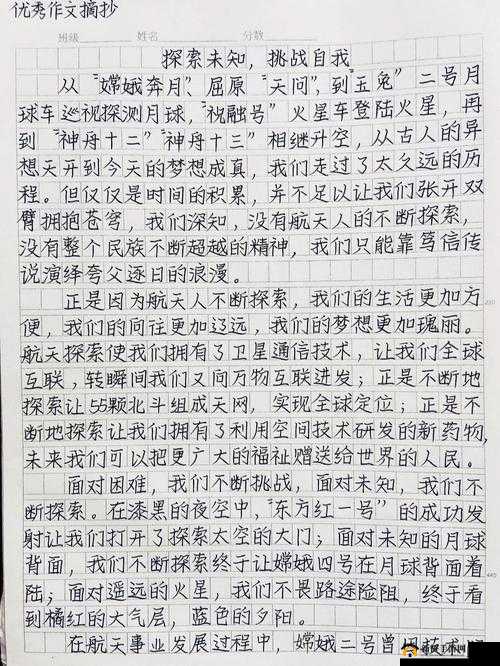 优秀作文摘抄
班级 姓名 分数
探索未知,挑战自我
从“嫦娥奔月”、屈原“天问”,到“玉兔”二号月
球车巡视探测月球,“祝融号”火星车登陆火星,再
到“神舟十二”“神舟十三”相继升空,从古人的异
想天开到今天的梦想成真,我们走过了太久远的历
程。但仅仅是时间的积累,并不足以让我们张开双
臂拥抱苍穹,我们深知,没有航天人的不断探索,
没有整个民族不断超越的精神,我们只能靠笃信传
说演绎夸父逐日的浪漫。
正是因为航天人不断探索,我们的生活更加方
便,我们的向往更加辽远,我们的梦想更加瑰丽。
航天探索使我们拥有了卫星通信技术,让我们全球
互联,转瞬间我们又向万物互联进发;正是不断地
探索让55颗北斗组成天网,实现全球定位;正是不
断地探索让我们拥有了利用空间技术研发的新药物,
未来我们可以把更广大的福祉赠送给世界的人民。
面对困难,我们不断挑战,面对未知,我们不
断探索。在漆黑的夜空中,“东方红一号”的成功发
射让我们打开了探索太空的大门;面对未知的月球
背面,我们不断探索终于让嫦娥四号在月球背面着
陆;面对遥远的火星,我们不畏路途险阻,终于看
到橘红的大气层,蓝色的夕阳。
在航天事业发展过程中,嫦娥二号曾